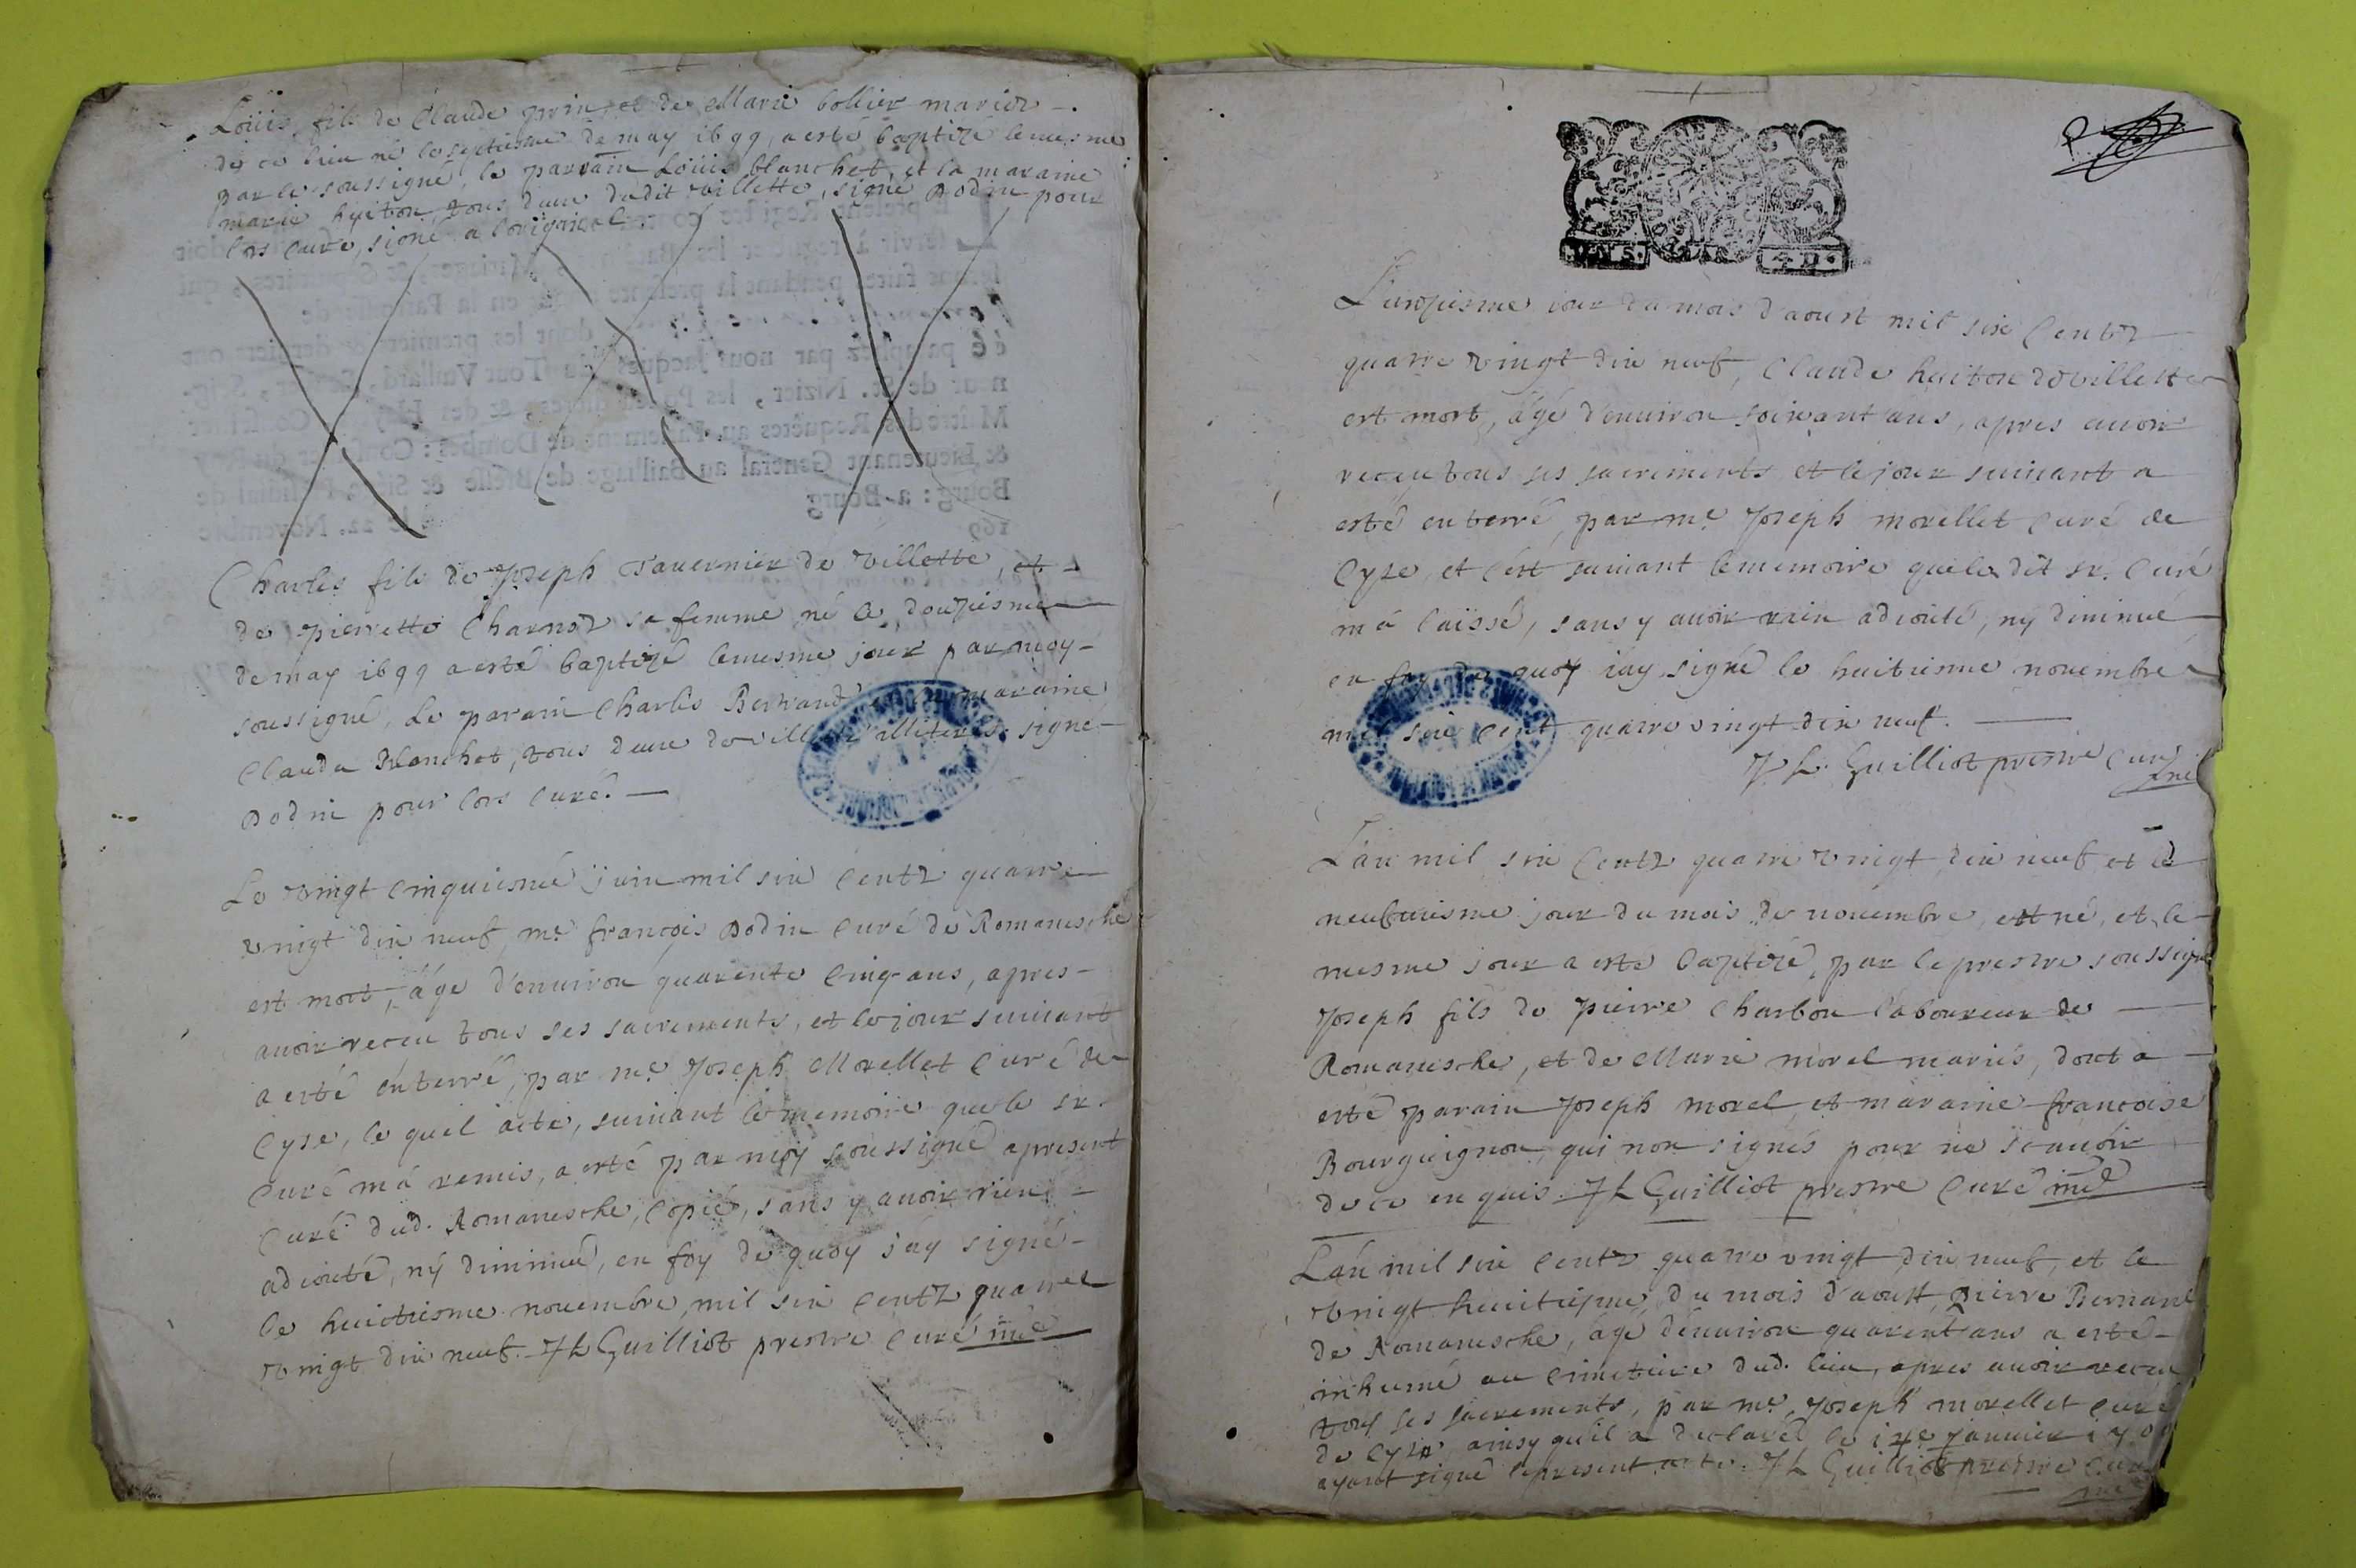 Loüis, fils de Claude et de Marie bollier mariez
de ce lieu né le septiesme de may 1699, a esté baptizé le mesme
par le soussigné, le parrain Loüis blanchet, et la maraine
marie huiton, tous deux dudit villette, signé Dodin pour
lors curé, signé a l'original.
Charles fils de Joseph Tavernier de villette, et
de pierrette Charnoz sa femme né le douziesme
de may 1699 a esté baptizé le mesme jour par moy
soussigné, le parain Charles Bertrand et la maraine
Clauda Blanchet, tous deux de villette illiterés. signé
Dodin pour lors curé.
Le vingt cinquiesme juin mil six centz quatre
vingt dix neuf, me. françois Dodin curé de Romanesche
est mort, âgé d'enuiron quarente cinq ans, apres
auoir receu tous ses sacrements, et le jour suiuant
a esté enterré, par me. Joseph Morellet curé de
Cyze, le quel acte, suiuant le memoire que le sr.
curé m'a remis, a esté par moy soussigné apresent
curé dud. Romanesche, copié, sans y auoir rien
adiouté, ny diminué, en foy de quoy j'ay signé
le huictiesme nouembre, mil six centz quatre
vingt dix neuf. JL Guilliot prestre curé
L'unziesme iour du mois d'aoust mil six centz
quatre vingt dix neuf, Claude huiton de villette
est mort, âgé d'enuiron soixant ans, apres auoir
receu tous ses sacrements et le jour suiuant a
esté enterré, par me. Joseph morellet curé de
Cyze, et c'est suiuant le memoire que le dit sr. curé
m'a laissé, sans y auoir rien adiouté, ny diminué
en foy de quoy i'ay signé le huitiesme nouembre
mil six cent quatre vingt dix neuf.
JL. Guilliot prestre curé
L'an mil six centz quatre vingt dix neuf, et le
neufuiesme jour du mois de nouembre, est né, et le
mesme jour a esté baptizé, par le prestre soussigné
Joseph fils de pierre Charbon laboureur de
Romanesche, et de Marie morel mariés, dont a
esté parain Joseph morel, et maraine françoise
Bourguignon, qui n'on signés pour ne scauoir
de ce enquis. JL Guilliot prestre curé
L'an mil six centz quatre vingt dix neuf, et le
vingt huictiesme du mois d'aoust, pierre Bernard
de Romanesche, âgé d'enuiron quarent ans a esté
inhumé au cimetiere dud. lieu, apres auoir receu
tous ses sacrements, par me. Joseph morellet curé
de Cyze, ainsy qu'il a declaré le januier 1700
ayant signé le present acte. JL Guilliot prestre curé